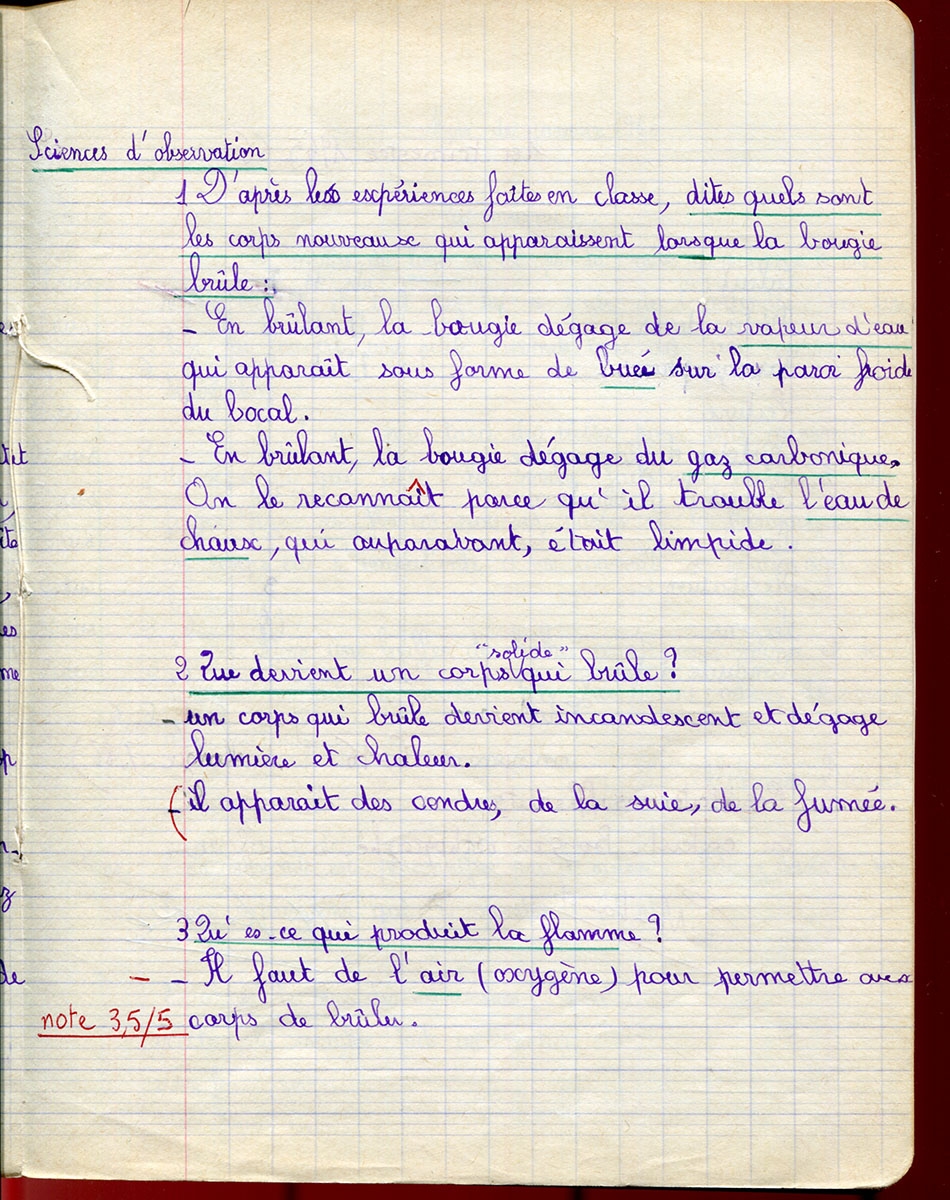 Sciences d'observation
1 D'après les expériences faîtes en classe, dites quels sont
les corps nouveaux qui apparaissent lorsque la bougie
brûle :
- En brûlant, la bougie dégage de la vapeur d'eau
qui apparaît sous forme de buée sur la paroi froide
du bocal.
- En brûlant, la bougie dégage du gaz carbonique.
On le reconnaît parce qu'il trouble l'eau de
chaux, qui auparavant, était limpide.
"solide"
2 Que devient un corps qui brûle ?
- un corps qui brûle devient incandescent et dégage
lumière et chaleur.
- il apparait des cendres, de la suie, de la fumée.
3 Qu'es-ce qui produit la flamme ?
- Il faut de l'air (oxygène) pour permettre aux
note 3,5/5 corps de brûler.